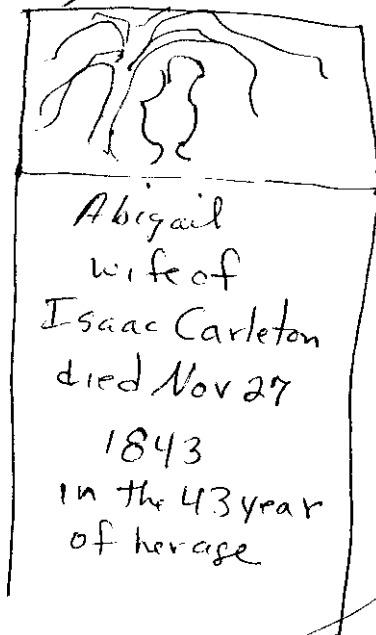 Abigail
wife of
Isaac Carleton
died Nov 27
1843
in the 43 year
of her age